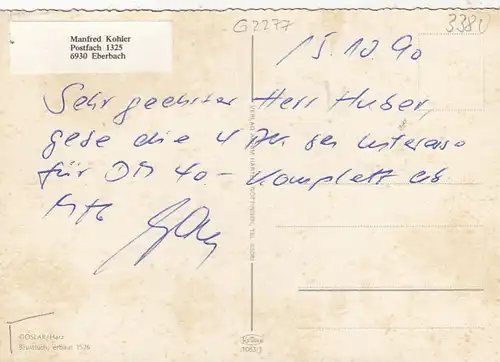 Manfred Kohler
Postfach 1325
6930 Eberbach
G2277
3380
15.10.90
Sehr geehrter Herr Huber,
gebe die 4 bei Interesse
für DM 40- komplett ab
MfG
GOSLAR/Harz
Brusttuch, erbaut 1526